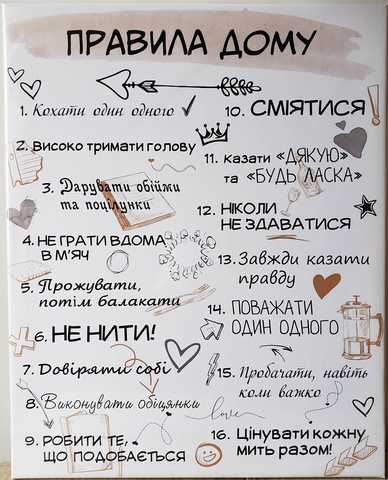 ПРАВИЛА ДОМУ
1. Кохати один одного
2. Високо тримати голову
3. Дарувати обійми
та поцілунки
4. НЕ ГРАТИ ВДОМА
В М'ЯЧ
5. Прожувати,
потім балакати
6. НЕ НИТИ!
7. Довіряти собі
8. Виконувати обіцянки
9. РОБИТИ ТЕ,
ЩО ПОДОБАЄТЬСЯ
10. СМІЯТИСЯ
11. казати «ДЯКУЮ»
та «БУДЬ ЛАСКА»
12. НІКОЛИ
НЕ ЗДАВАТИСЯ
13. Завжди казати
правду
14. ПОВАЖАТИ
ОДИН ОДНОГО
15. Пробачати, навіть
коли важко
love
16. Цінувати кожну
мить разом!